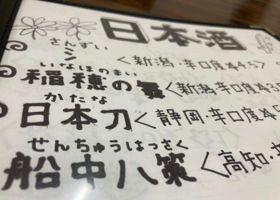 日本酒
さんずい
氵<新潟・辛口度
いなほのまい
稲穂の舞<新潟・辛口度
かたな
日本刀<静岡・辛口度
せんちゅうはっさく
船中八策<高知・